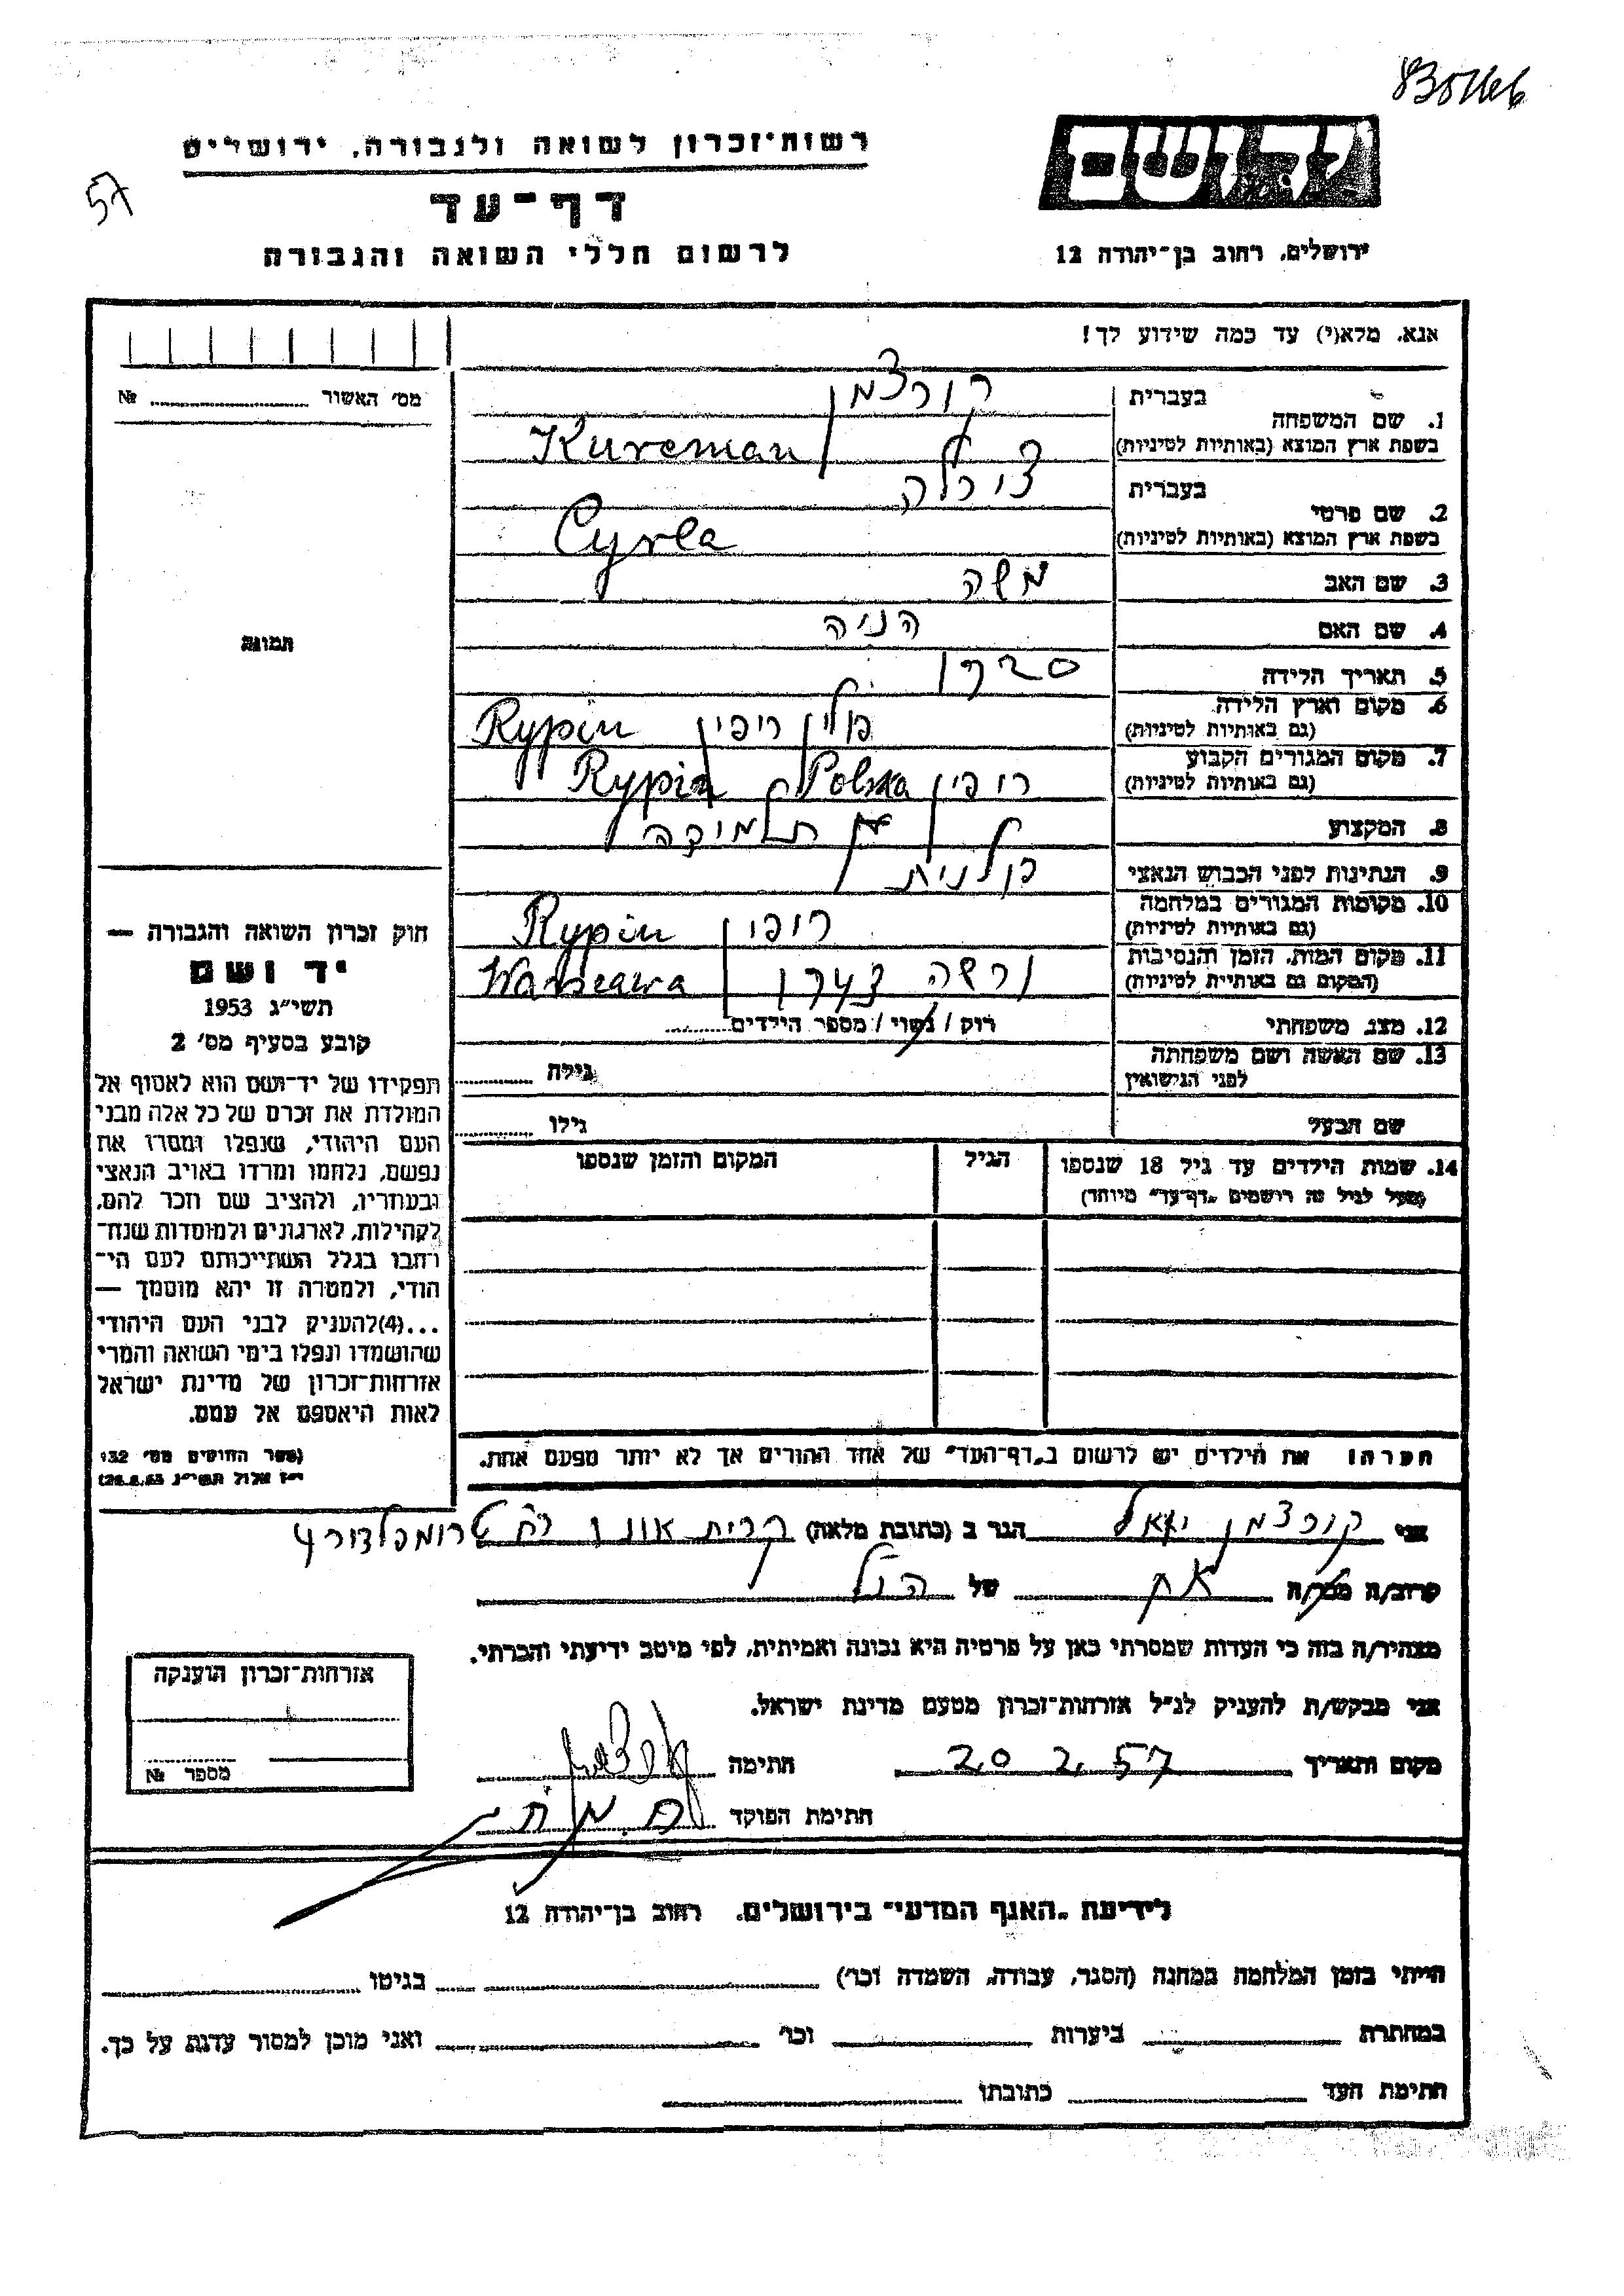 רשות־זכרון לשואה ולגבורה, ירושלים
דף־עד
לרשום חללי השואה והגבורה
57
ידושם
ירושלים, רחוב בן־יהודה 12
אנא, מלא(י) עד כמה שידוע לך!
מס' האשור № 
תמונה
1. שם המשפחה
בעברית קורצמן
בשפת ארץ המוצא (באותיות לטיניות) Kurcman
2. שם פרטי
בעברית צירלה
בשפת ארץ המוצא (באותיות לטיניות) Cyrla
3. שם האב משה
4. שם האם הניה
5. תאריך הלידה
6. מקום וארץ הלידה (גם באותיות לטיניות) פולין ריפין Rypin
7. מקום המגורים הקבוע (גם באותיות לטיניות) ריפין Rypin Polska
8. המקצוע תלמידה
9. הנתינות לפני הכבוש הנאצי פולנית
10. מקומות המגורים במלחמה (גם באותיות לטיניות) ריפין Rypin
11. מקום המות, הזמן והנסיבות (המקום גם באותיות לטיניות) ורשה Warszawa
12. מצב משפחתי רוק / נשוי / מספר הילדים
13. שם האשה ושם משפחתה לפני הנישואין גילה
שם הבעל גילו
14. שמות הילדים עד גיל 18 שנספו הגיל המקום והזמן שנספו
(מעל לגיל זה רושמים "דף־עד" מיוחד)
הערה: את הילדים יש לרשום ב"דף־העד" של אחד ההורים אך לא יותר מפעם אחת.
חוק זכרון השואה והגבורה —
יד ושם
תשי"ג 1953
קובע בסעיף מס' 2
תפקידו של יד־ושם הוא לאסוף אל
המולדת את זכרם של כל אלה מבני
העם היהודי, שנפלו ומסרו את
נפשם, נלחמו ומרדו באויב הנאצי
ובעוזריו, ולהציב שם וזכר להם,
לקהילות, לארגונים ולמוסדות שנח־
רבו בגלל השתייכותם לעם הי־
הודי, ולמטרה זו יהא מוסמך —
...(4)להעניק לבני העם היהודי
שהושמדו ונפלו בימי השואה והמרי
אזרחות־זכרון של מדינת ישראל
לאות היאספם אל עמם.
(ספר החוקים מס' 132
י"ז אלול תשי"ג 28.8.53)
אני קורצמן יואל הגר ב (כתובת מלאה) קרית אונו רח טרומפלדור 4
קרוב/ה מכר/ה אח של הנ"ל
מצהיר/ה בזה כי העדות שמסרתי כאן על פרטיה היא נכונה ואמיתית, לפי מיטב ידיעתי והכרתי.
אני מבקש/ת להעניק לנ"ל אזרחות־זכרון מטעם מדינת ישראל.
מקום ותאריך 20.2.57 חתימה
חתימת הפוקד
אזרחות־זכרון הוענקה
מספר №
לידיעת "האגף המדעי" בירושלים, רחוב בן־יהודה 12
הייתי בזמן המלחמה במחנה (הסגר, עבודה, השמדה וכו') בגיטו
במחתרת ביערות וכו' ואני מוכן למסור עדות על כך.
חתימת העד כתובתו